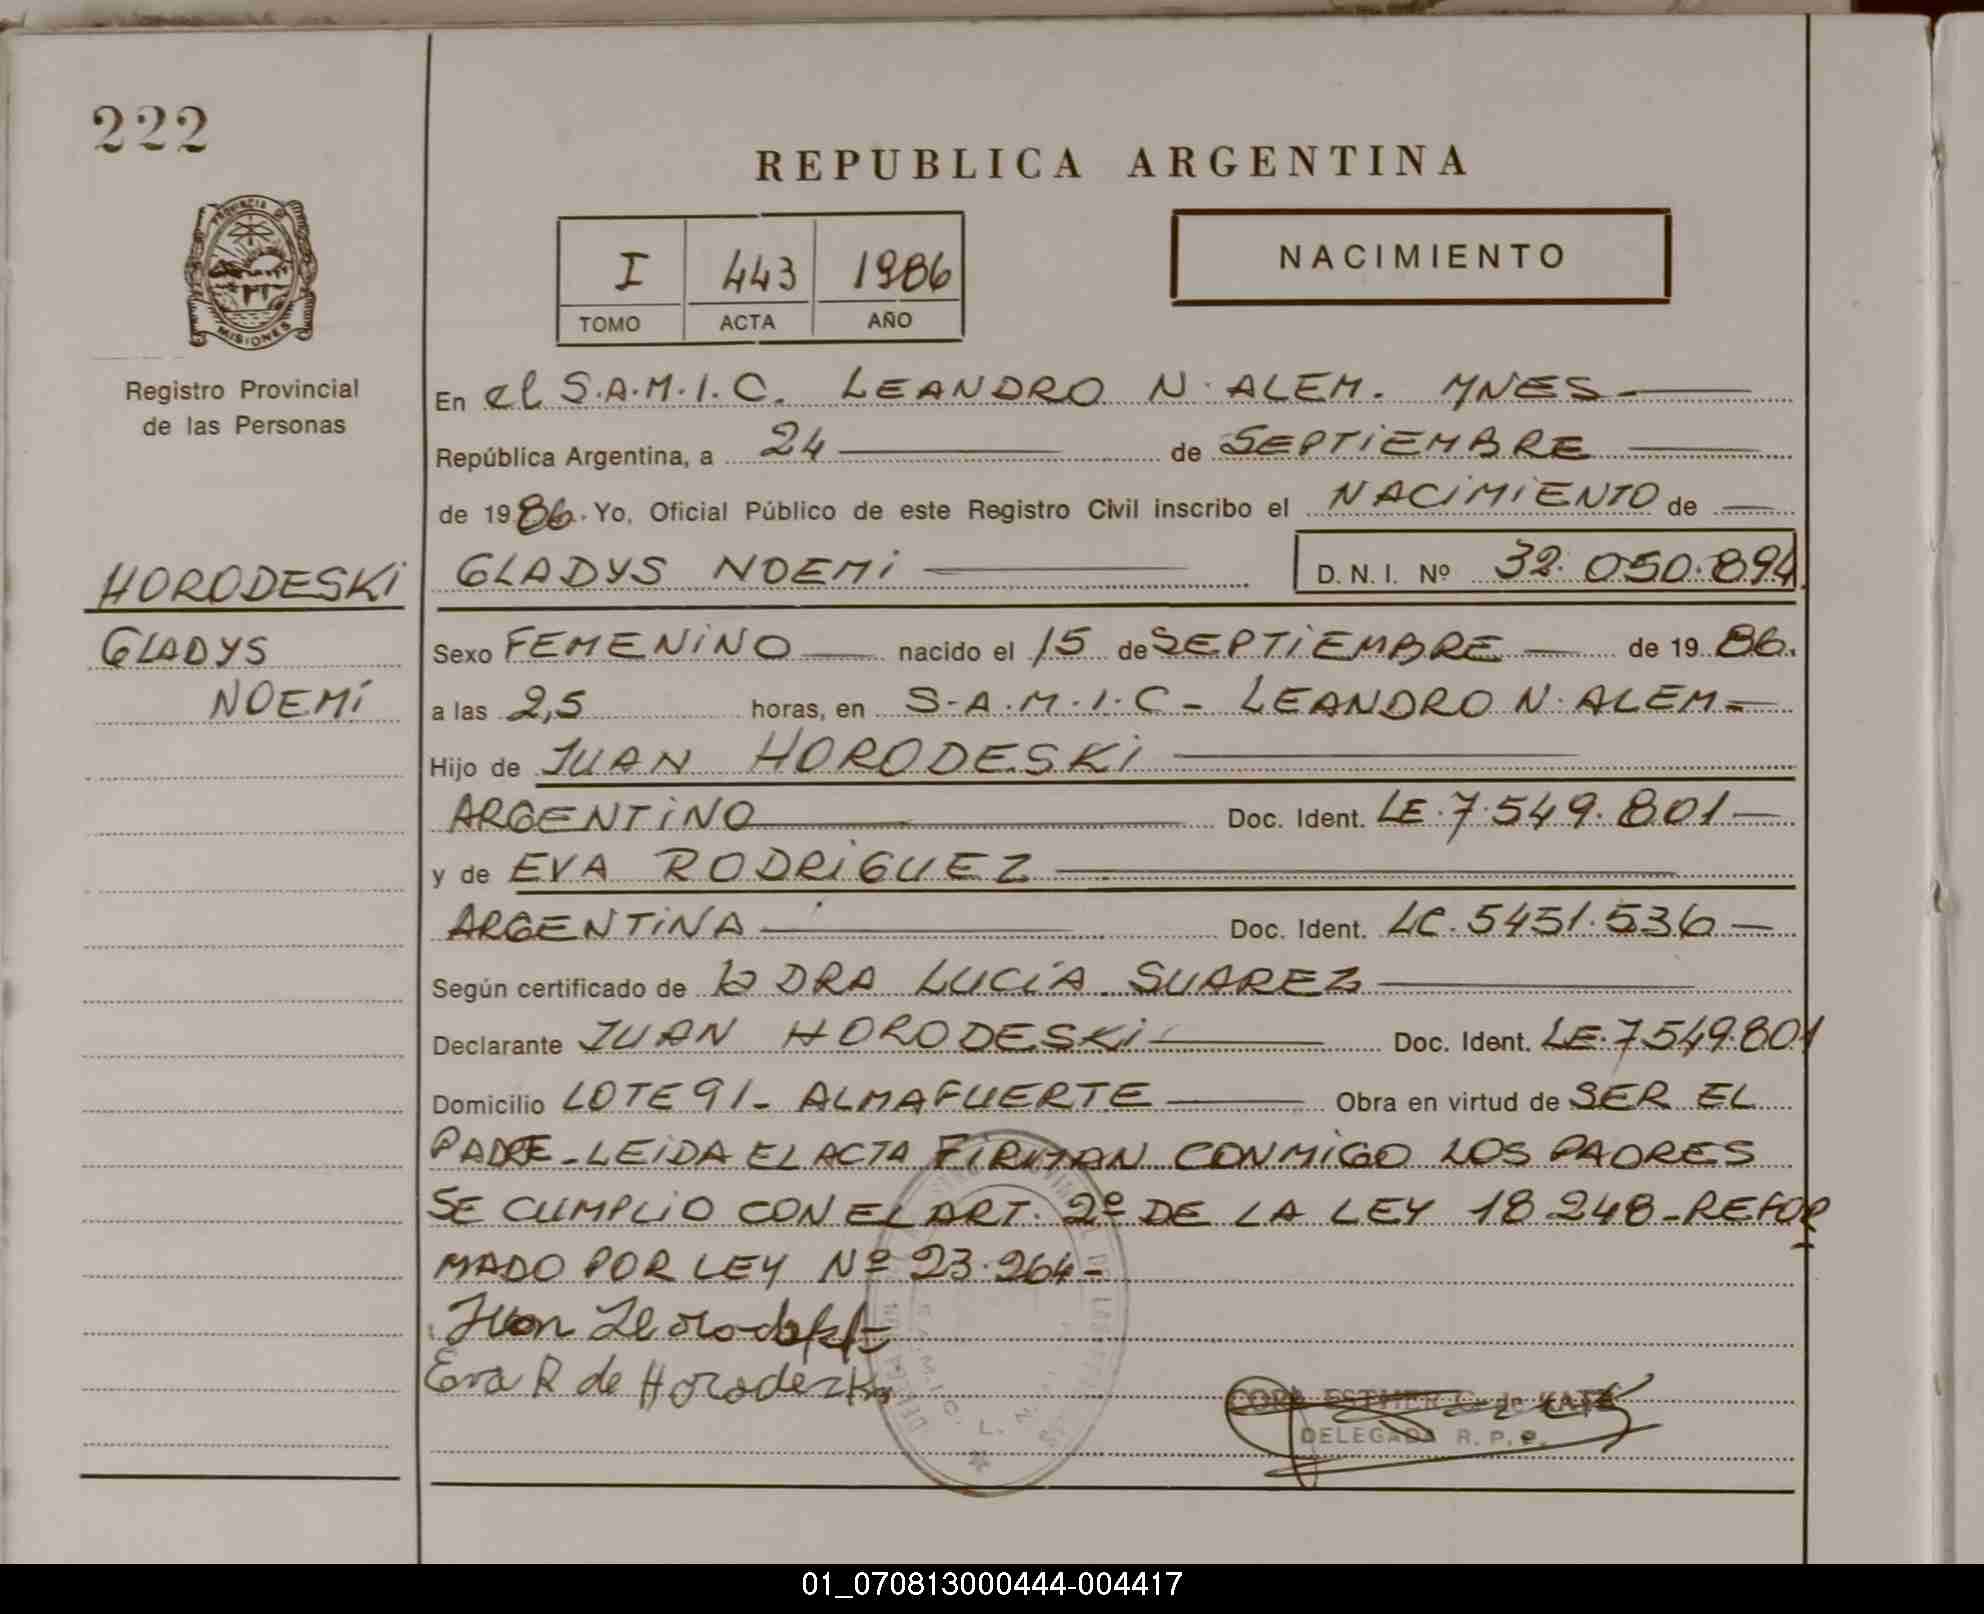 222
REPUBLICA ARGENTINA
PROVINCIA DE
MISIONES
Registro Provincial
de las Personas
I 443 1986
TOMO ACTA AÑO
NACIMIENTO
En el S.A.M.I.C. LEANDRO N. ALEM. MNES
República Argentina, a 24 de SEPTIEMBRE
de 1986. Yo, Oficial Público de este Registro Civil inscribo el NACIMIENTO de
HORODESKI
GLADYS NOEMI
GLADYS NOEMI D.N.I. Nº 32.050.894
Sexo FEMENINO nacido el 15 de SEPTIEMBRE de 1986.
a las 2,5 horas, en S.A.M.I.C - LEANDRO N. ALEM
Hijo de JUAN HORODESKI
ARGENTINO Doc. Ident. LE.7.549.801
y de EVA RODRIGUEZ
ARGENTINA Doc. Ident. LC.5451.536
Según certificado de la DRA LUCIA SUAREZ
Declarante JUAN HORODESKI Doc. Ident. LE.7549.801
Domicilio LOTE 91- ALMAFUERTE Obra en virtud de SER EL
PADRE-LEIDA EL ACTA FIRMAN CONMIGO LOS PADRES
SE CUMPLIO CON EL ART. 2º DE LA LEY 18.248-REFOR
MADO POR LEY Nº 23.264-
Juan
Eva R de Horodezki
CORA ESTHER G. de
DELEGADA R.P.P.
01_070813000444-004417